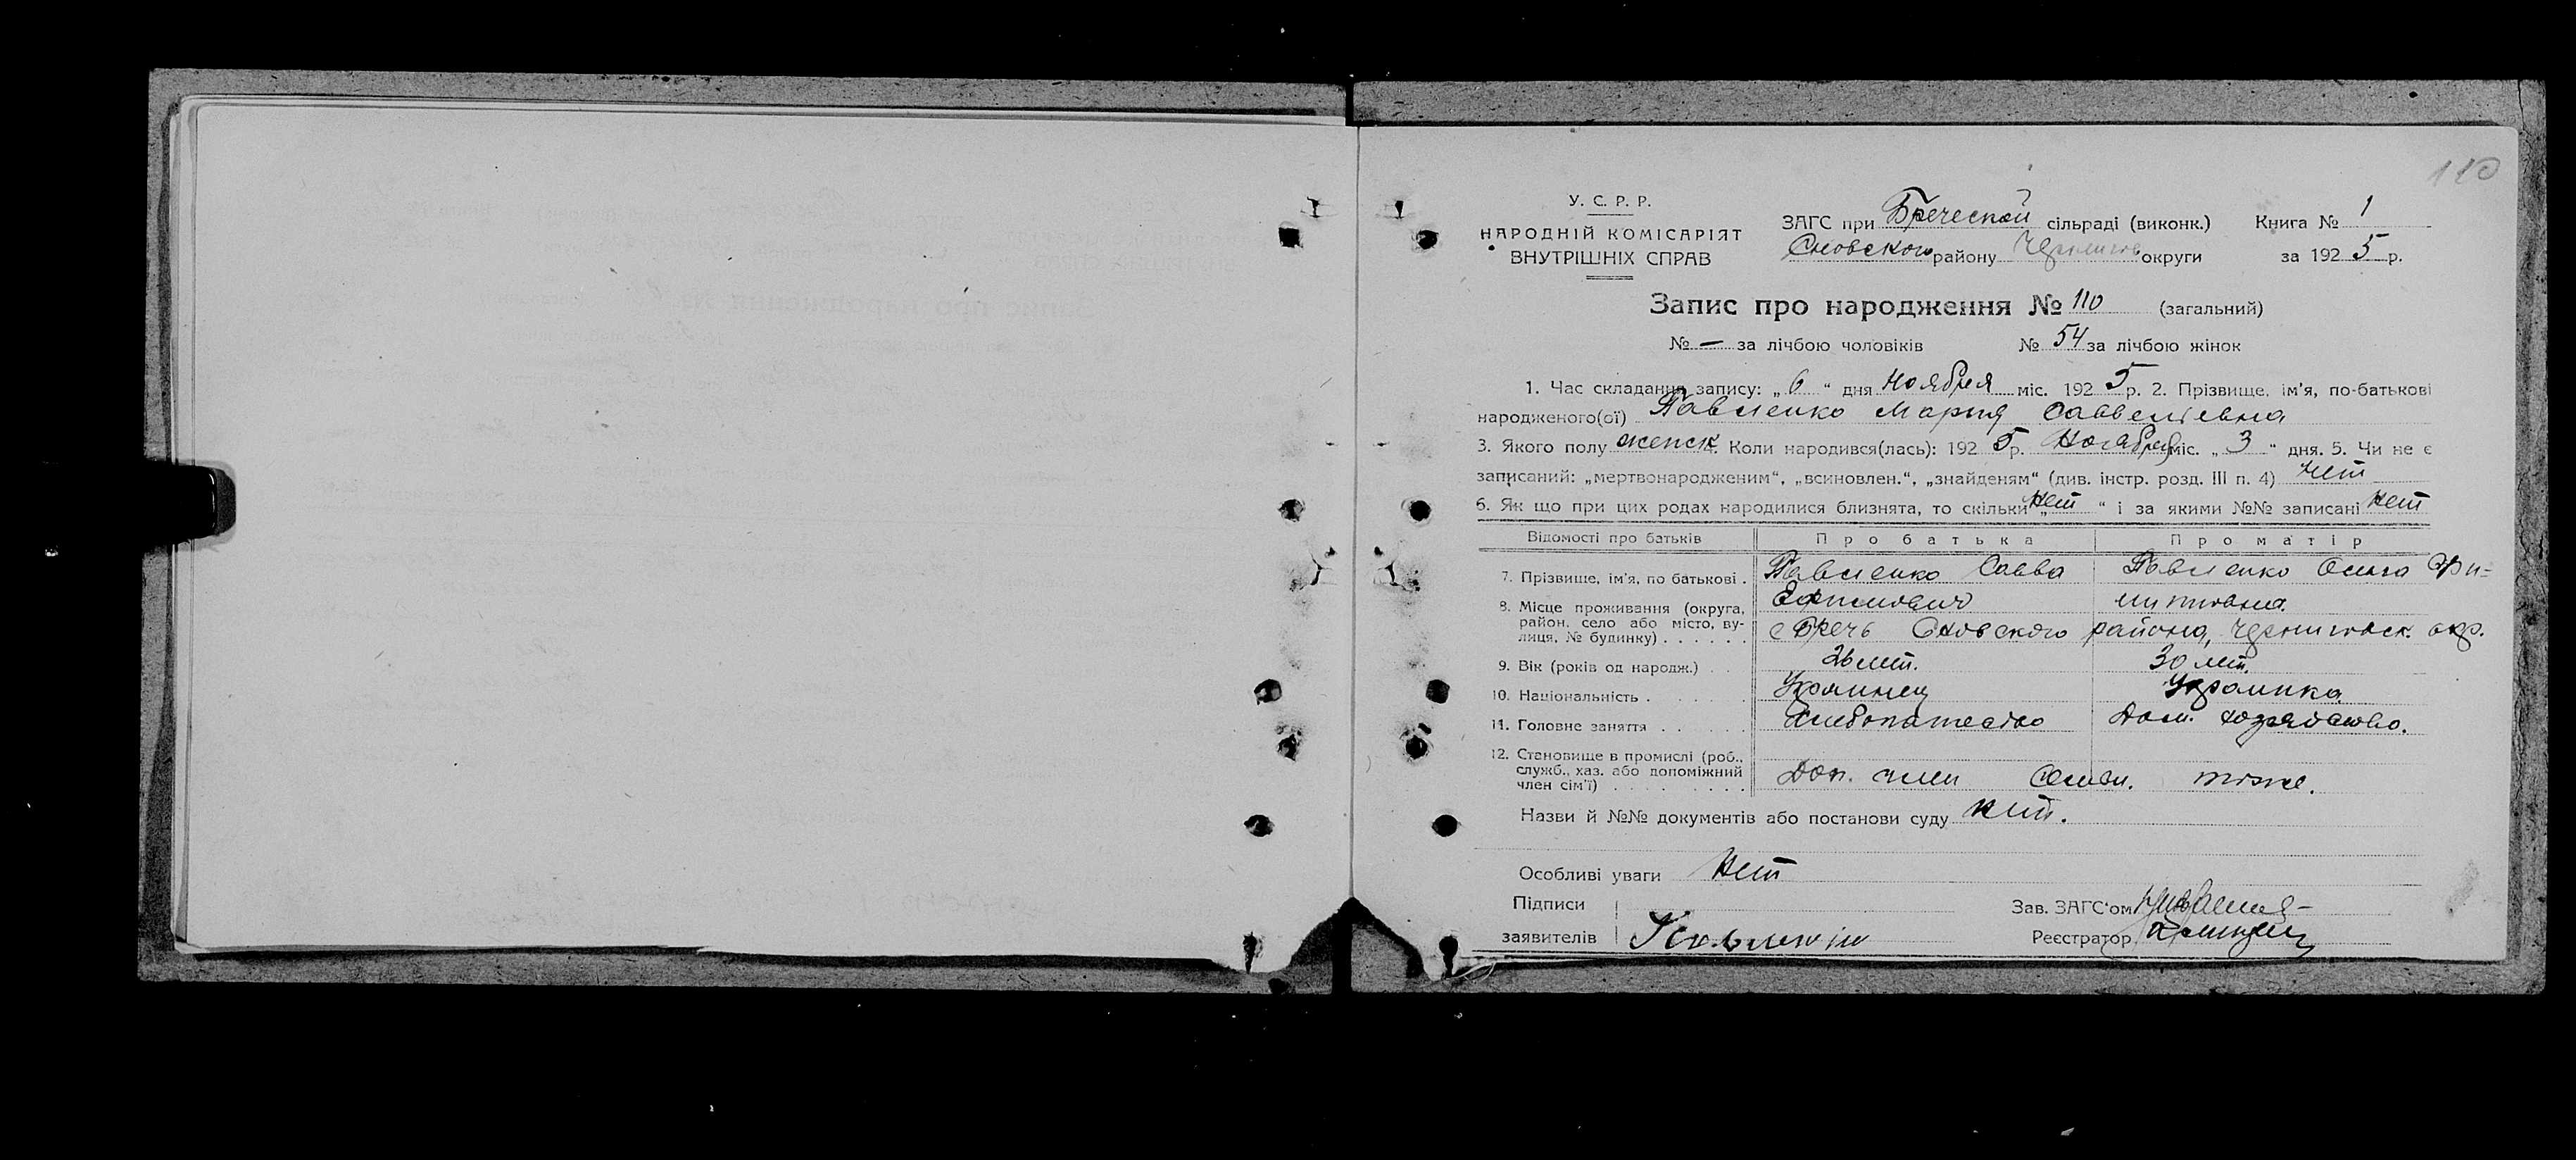 110
У. С. Р. Р.
НАРОДНІЙ КОМІСАРІЯТ
ВНУТРІШНІХ СПРАВ
ЗАГС при Бреческой сільраді (виконк.) Книга № 1
Сновского району Чернигов округи за 1925 р.
Запис про народження № 110 (загальний)
№ — за лічбою чоловіків № 54 за лічбою жінок
1. Час складання запису: „ 6 “ дня Ноября міс. 1925 р. 2. Прізвище, ім'я, по-батькові
народженого(ої) Павленко Мария Саввелиевна
3. Якого полу женск 4. Коли народився(лась): 1925 р. Ноября міс. „ 3 “ дня. 5. Чи не є
записаний: „мертвонародженим“, „всиновлен.“, „знайденям“ (див. інстр. розд. III п. 4) Нет
6. Як що при цих родах народилися близнята, то скільки „ Нет “ і за якими №№ записані Нет
Відомості про батьків Про батька Про матір
7. Прізвище, ім'я, по батькові . Павленко Савва Павленко Ольга Фи=
8. Місце проживання (округа, район, село або місто, вулиця, № будинку) . . . . . .
с Бречь Сновского района, Черниговск. окр.
9. Вік (років од народж.) . . 26 лет. 30 лет.
10. Національність . . . . . Украинец Украинка
11. Головне заняття . . . . . . Хлебопашество Дом. хозяйство.
12. Становище в промислі (роб., служб., хаз. або допоміжний член сім'ї) . . . . . . . . .
Доп. член семьи. тоже.
Назви й №№ документів або постанови суду Нет.
Особливі уваги Нет
Підписи
заявителів
Зав. ЗАГС'ом
Реєстратор